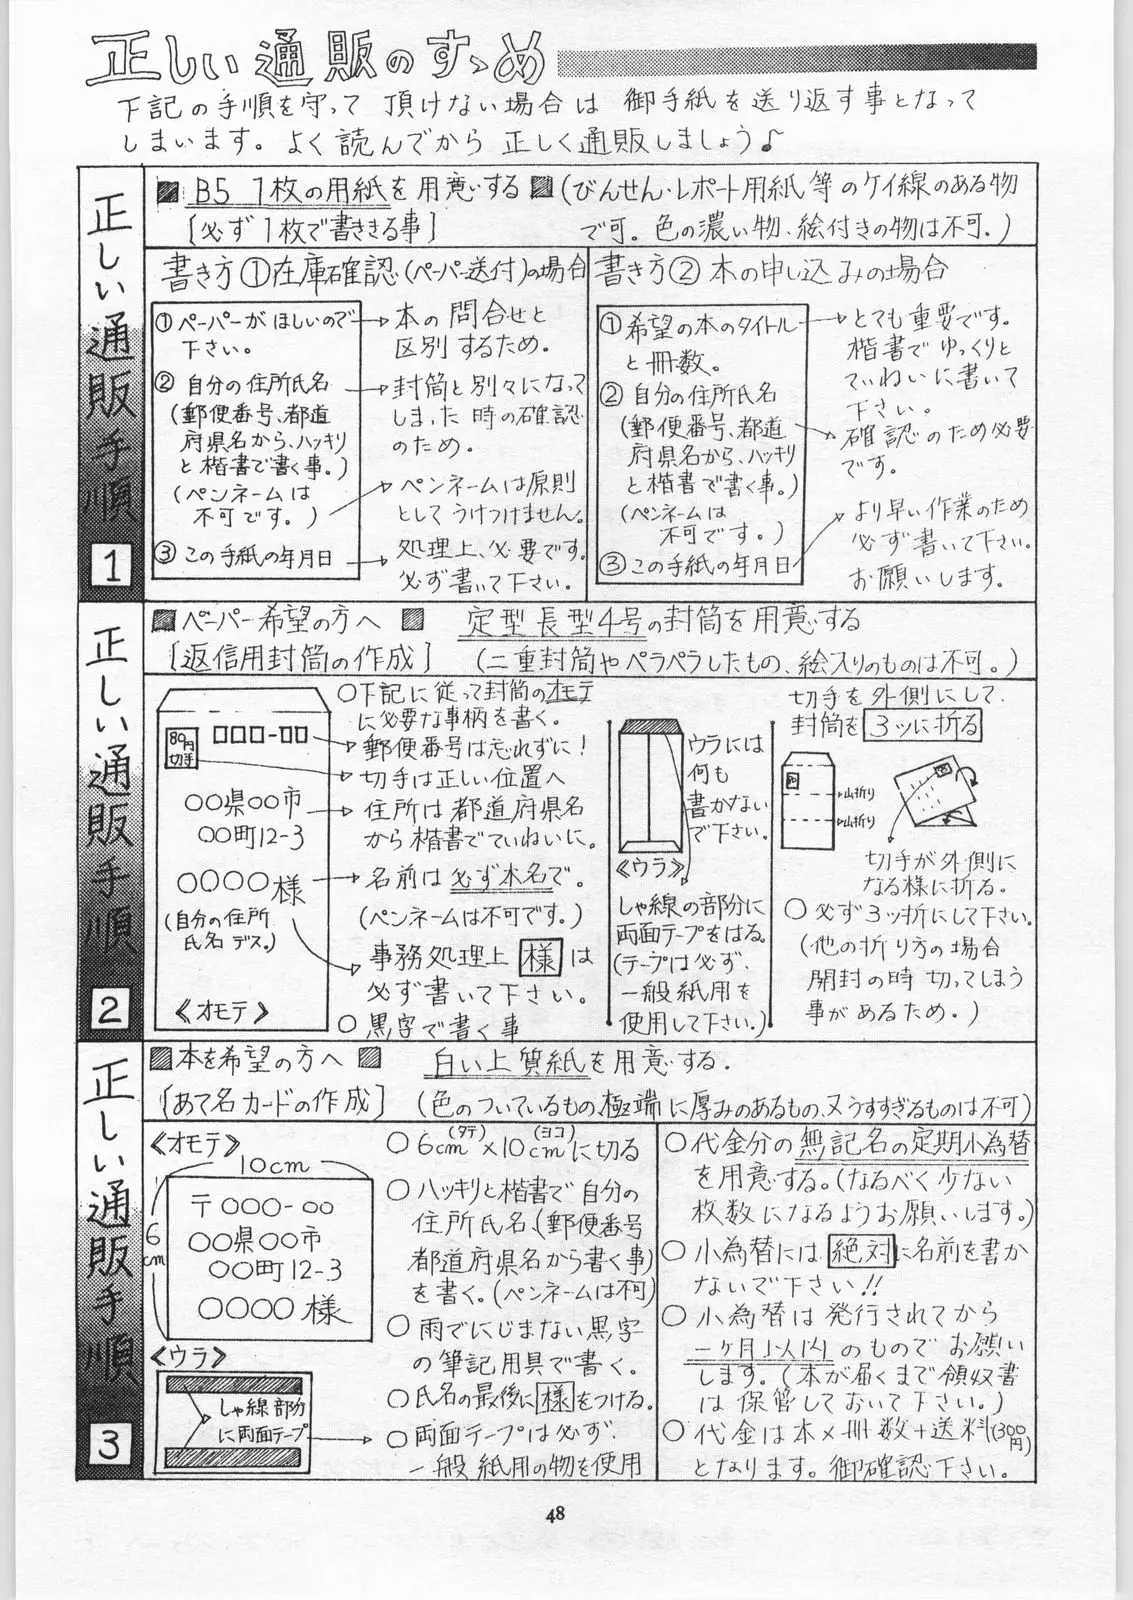 正しい通販のすゝめ
下記の手順を守って頂けない場合は御手紙を送り返す事となって
しまいます。よく読んでから正しく通販しましょう♪
正しい通販手順 1
■ B5 1枚の用紙を用意する ■ (びんせん・レポート用紙等のケイ線のある物
[必ず1枚で書ききる事] で可。色の濃い物、絵付きの物は不可。)
書き方①在庫確認(ペーパー送付)の場合
①ペーパーがほしいので
下さい。
→本の問合せと
区別するため。
②自分の住所氏名
(郵便番号、都道
府県名から、ハッキリ
と楷書で書く事。)
→封筒と別々になって
しまった時の確認
のため。
(ペンネームは
不可です。)
→ペンネームは原則
としてうけつけません。
③この手紙の年月日
→処理上、必要です。
必ず書いて下さい。
書き方②本の申し込みの場合
①希望の本のタイトル
と冊数。
→とても重要です。
楷書でゆっくりと
ていねいに書いて
下さい。
②自分の住所氏名
(郵便番号、都道
府県名から、ハッキリ
と楷書で書く事。)
(ペンネームは
不可です。)
→確認のため必要
です。
③この手紙の年月日
→より早い作業のため
必ず書いて下さい。
お願いします。
正しい通販手順 2
■ペーパー希望の方へ ■ 定型長型4号の封筒を用意する
[返信用封筒の作成] (二重封筒やペラペラしたもの、絵入りのものは不可。)
80円
切手
□□□-□□
○○県○○市
○○町12-3
○○○○様
(自分の住所
氏名デス。)
《オモテ》
○下記に従って封筒のオモテ
に必要な事柄を書く。
→郵便番号は忘れずに!
→切手は正しい位置へ
→住所は都道府県名
から楷書でていねいに。
→名前は必ず本名で。
(ペンネームは不可です。)
事務処理上様は
必ず書いて下さい。
○黒字で書く事
ウラには
何も
書かない
で下さい。
《ウラ》
しゃ線の部分に
両面テープをはる。
(テープは必ず、
一般紙用を
使用して下さい。)
切手を外側にして、
封筒を3ツに折る
80
→山折り
→山折り
切手が外側に
なる様に折る。
○必ず3ッ折にして下さい。
(他の折り方の場合
開封の時切ってしまう
事があるため。)
正しい通販手順 3
■本を希望の方へ ■ 白い上質紙を用意する.
[あて名カードの作成] (色のついているもの、極端に厚みのあるもの、又うすすぎるものは不可)
《オモテ》
10cm
6cm
〒○○○-○○
○○県○○市
○○町12-3
○○○○様
《ウラ》
しゃ線部分
に両面テープ
○6cm(タテ)×10cm(ヨコ)に切る
○ハッキリと楷書で自分の
住所氏名(郵便番号
都道府県名から書く事)
を書く。(ペンネームは不可)
○雨でにじまない黒字
の筆記用具で書く。
○氏名の最後に様をつける。
○両面テープは必ず、
一般紙用の物を使用
○代金分の無記名の定期小為替
を用意する。(なるべく少ない
枚数になるようお願いします。)
○小為替には絶対に名前を書か
ないで下さい!!
○小為替は発行されてから
一ヶ月以内のものでお願い
します。(本が届くまで領収書
は保管しておいて下さい。)
○代金は本×冊数+送料(300円)
となります。御確認下さい。
48